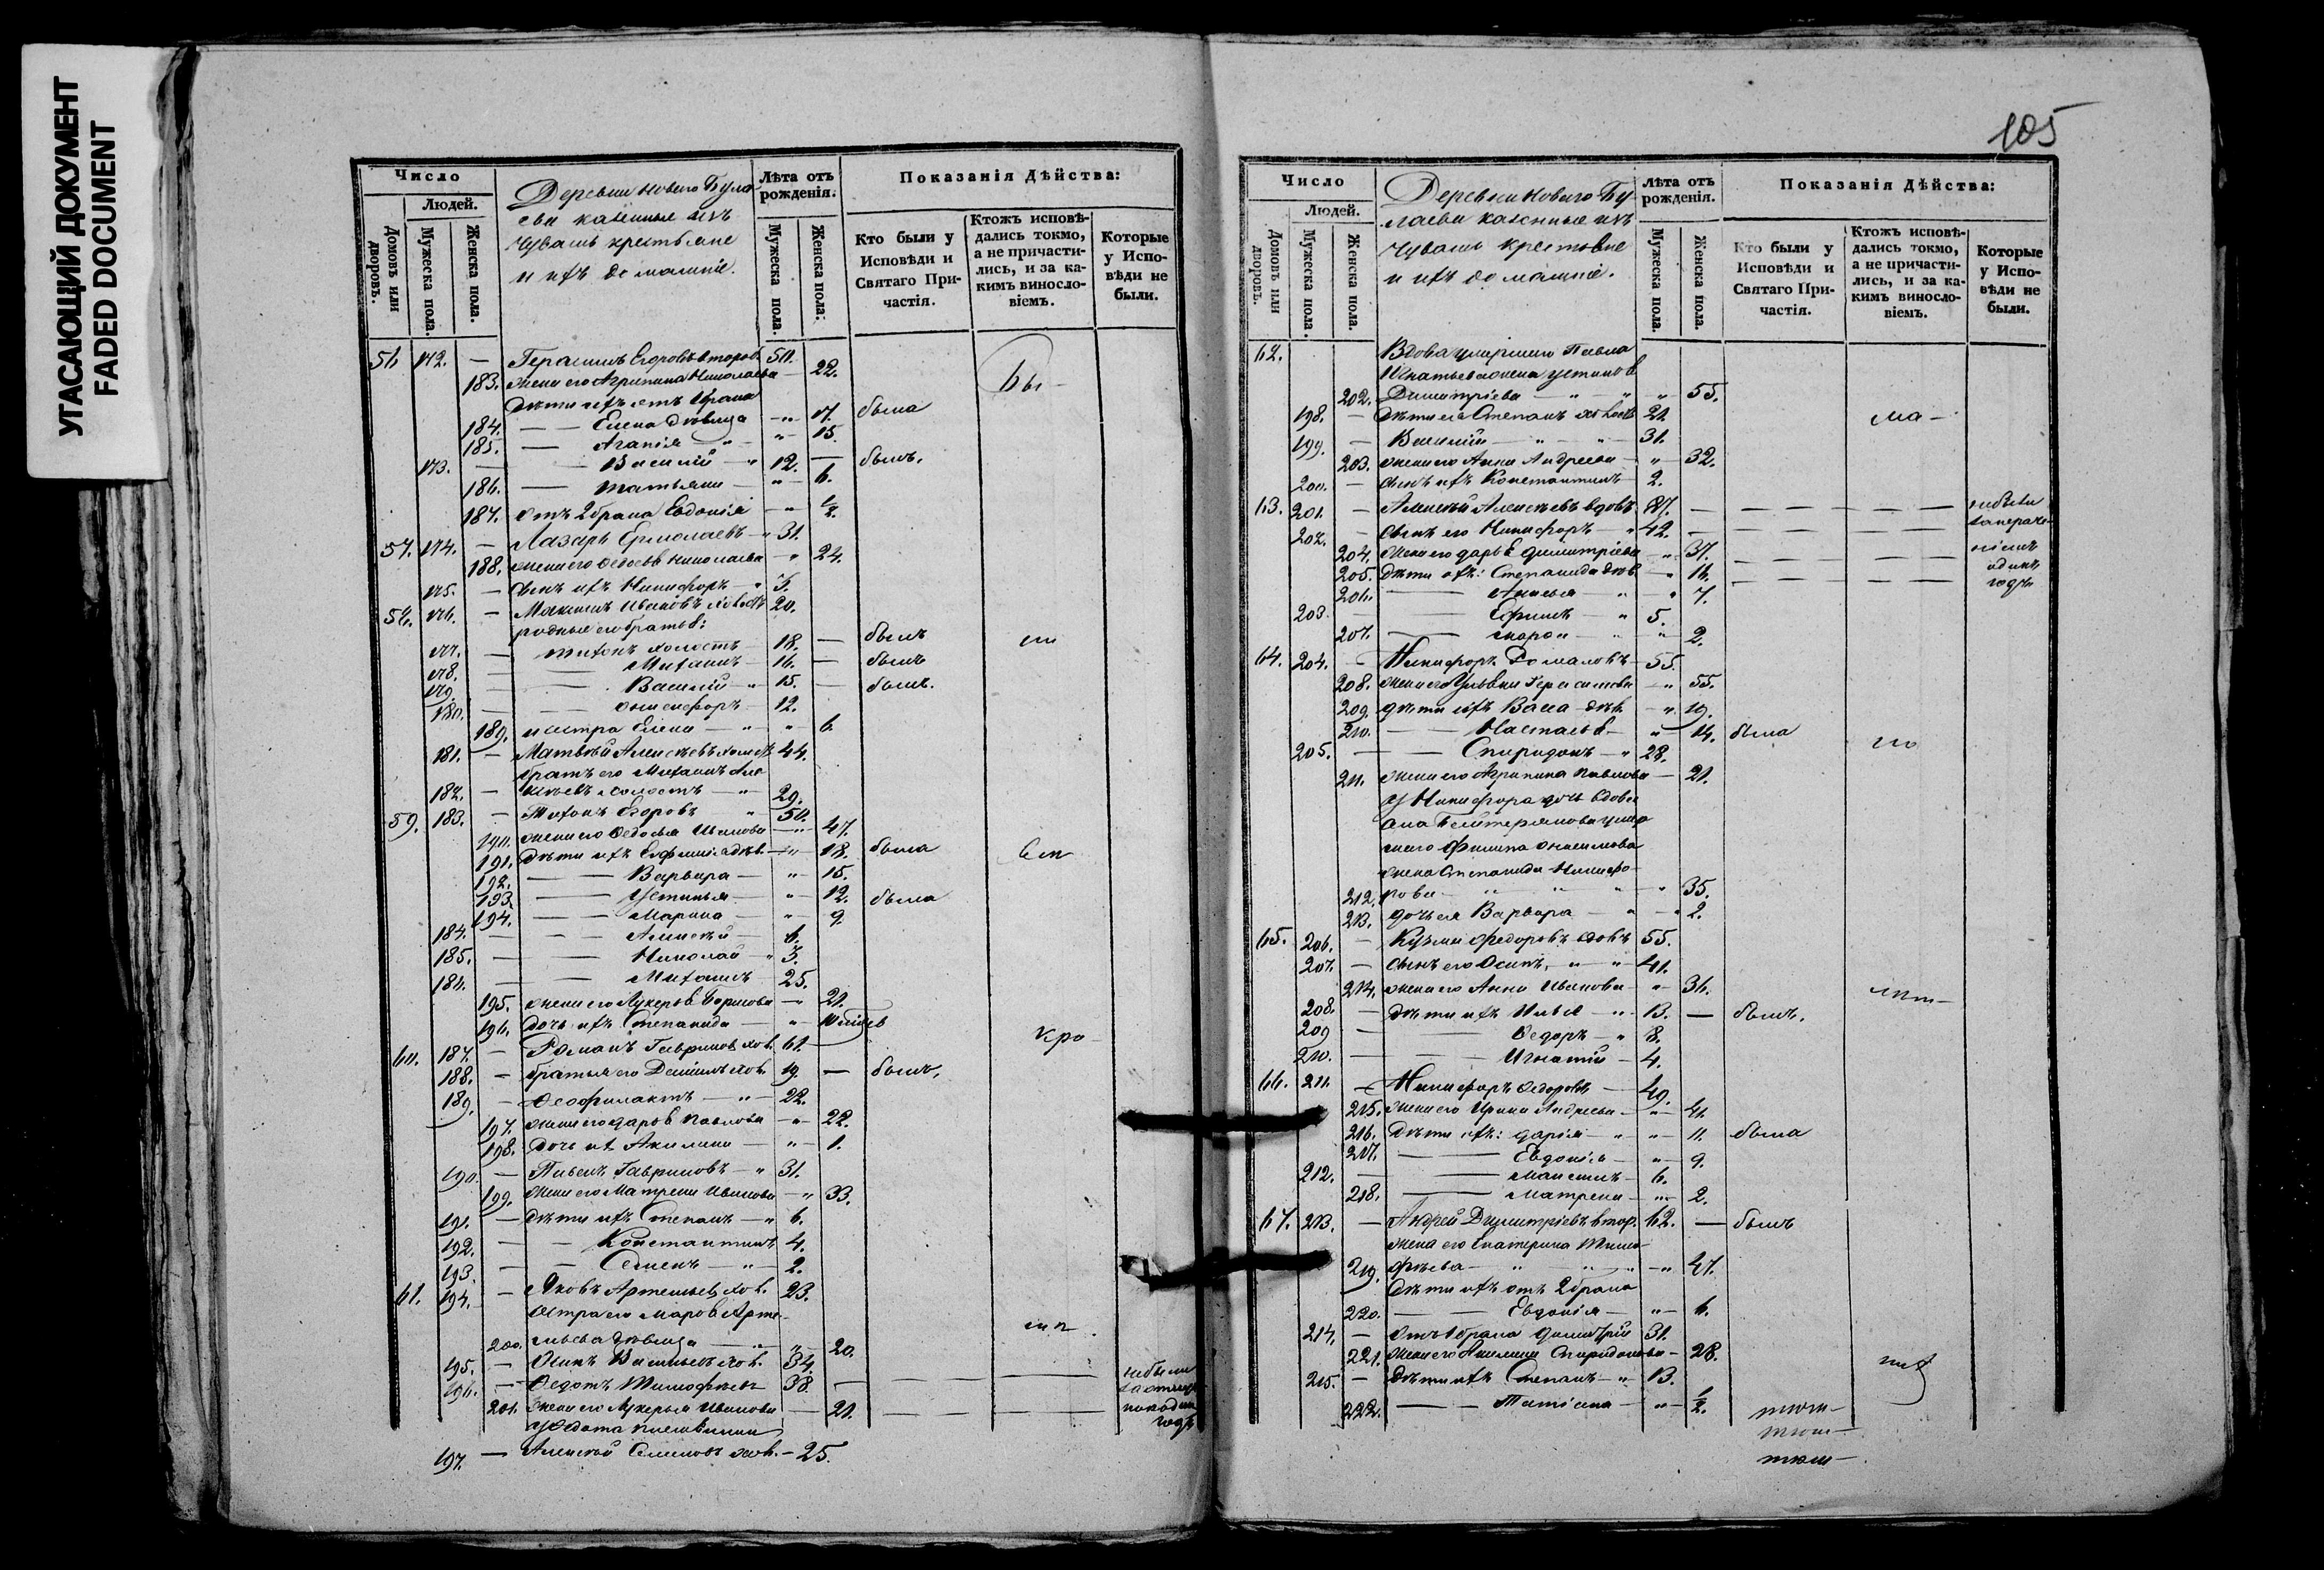 УГАСАЮЩИЙ ДОКУМЕНТ
FADED DOCUMENT
Число
Людей.
Домовъ или дворовъ.
Мужеска пола.
Женска пола.
Деревни Новаго Була
еви казенные изъ
Чувашъ крестьяне
и ихъ домашніе.
Лѣта отъ рожденія.
Мужеска пола.
Женска пола.
Показанія Дѣйства:
Кто были у Исповѣди и Святаго Причастія.
Ктожъ исповѣдались токмо, а не причастились, и за какимъ винословіемъ.
Которые у Исповѣди не были.
56. 172. — Герасимъ Егоровъ второв 50.
183. жена его Агрипина Николаева — 22.
Дѣти ихъ отъ 1брака
184. — — Елена дѣвица — " 17. была
185. — Агапія — " — " 15.
173. — — Василій — " 12. — былъ.
186. — Татьяна — " — 6.
187. отъ 2брака Евдокія — " ½.
57. 174. — Лазарь Ермолаевъ — " 31.
188. жена его Федосья Николаева — " 24.
175. — Сынъ ихъ Никифоръ — " 3.
58. 176. — Максимъ Ивановъ холостъ 20.
родные его братья:
177. — Тихонъ холостъ — 18. — былъ
178. — — Михаилъ — 16. — былъ
179. — — Василій — " 15. — былъ.
180. — — Онисифоръ — 12.
189. и сестра Елена — " — " 6.
181. — Матвѣй Алексѣевъ холост 44.
братъ его Михаилъ Але
182. — ксѣевъ холостъ — " 29.
59. 183. — Тихонъ Егоровъ " 50.
190. жена его Федосья Иванова — " 47.
191. Дѣти ихъ Евфимія дѣв. — " 18. была
192. — — Варвара — " — 15.
193. — — Устинья — " — 12. была
194. — — Марина — " — 9.
184. — — — Алексѣй — 6.
185. — — Николай — " 3.
186. — — Михаилъ — 25.
195. жена его Лукерья Борисова — " 21.
196. Дочь ихъ Степанида — "
60. 187. — Романъ Гавриловъ хол. 61.
188. — братья его Данилъ хол. 19. — былъ.
189. — Феофилактъ — " — 22.
197. жена его Дарья Павлова — " — 22.
198. Дочь их Акилина — " — 1.
190. — Павелъ Гавриловъ — " 31.
199. жена его Матрена Иванова — " 33.
191. — Дѣти ихъ Степанъ — " 6.
192. — — Константинъ 4.
193. — — Семенъ — " — 2.
61. 194. — Яковъ Артемьев хол. 23.
Сестра его Марья Арте
200. мьева дѣвица — " — " 20.
195. — Осипъ Васильевъ хол. 34.
196. — Федотъ Тимофѣевъ 38. — — — — небыли
201. жена его Лукерья Иванова — 21. — — —
у Федота племянникъ
197. — Алексѣй Семеновъ хол. — 25.
105
Число
Людей.
Домовъ или дворовъ.
Мужеска пола.
Женска пола.
Деревни Новаго Бу-
лаева казенные изъ
Чувашъ крестьяне
и ихъ домашніе.
Лѣта отъ рожденія.
Мужеска пола.
Женска пола.
Показанія Дѣйства:
Кто были у Исповѣди и Святаго Причастія.
Ктожъ исповѣдались токмо, а не причастились, и за какимъ винословіемъ.
Которые у Исповѣди не были.
62. Вдова умершаго Павла
Игнатьева жена Устинья
202. Димитріева — " — " — " 55.
198. — Дѣти ея Степанъ холост 21.
199. — Василій — " — " — 31.
203. жена его Анна Андреева — " 32.
200. — Сынъ ихъ Константинъ 2.
63. 201. — Алексѣй Алексѣевъ вдовъ 87. — — — — — небыли
202. — Сынъ его Никифоръ — " 42. —
204. жена его Дарья Димитріева — " 37. —
205. Дѣти ихъ: Степанида дѣв. — " 16. —
206. — — — " — " 7.
203. — Ефимъ — " 5.
207. — Марья — " — " 2.
64. 204. — Никифоръ Романовъ — 55.
208. жена его Ульяна Герасимова — " 55.
209. Дѣти ихъ Васса дѣв. — " 19.
210. — — Настасья — " 14. была
205. — — Спиридонъ — " 28.
211. жена его Агрипина Павлова — 21.
У Никифора дочь вдова
умер
шаго Филипа
жена Степанида Никифо
212. рова — " — " — " 35.
213. дочь ея Варвара — " — " 2.
65. 206. — Кузма Федоровъ вдовъ 55.
207. — Сынъ его Осипъ, — " — " 41.
214. жена его Анна Иванова — " 36.
208. — Дѣти ихъ Илья — " 13. — былъ.
209 — Федоръ — " 8.
210. — — Игнатій — 4.
66. 211. — Никифоръ Федоровъ — 49.
215. жена его Ирина Андреева — " — 41.
216. Дѣти ихъ: Дарія — " — " — 11. была
217. — Евдокія — " — 9.
212. — Максимъ — 6.
218. — Матрена — " — 2.
67. 213. — Андрей Димитріевъ втор. 62. — былъ
жена его Екатерина Тимо-
219. фѣева — " — " — " 47.
Дѣти ихъ отъ 2брака
220. — — Евдокія — " — 6.
214. — Отъ 1брака Димитрій 31.
221. жена его Акилина Спиридонова — 28.
215. — Дѣти ихъ Степанъ — " 13.
222. — — Татіана — " — ½.